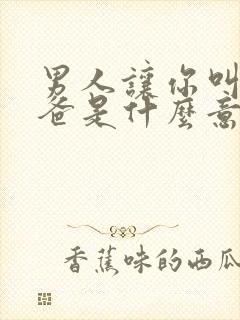 男人讓你叫
爸是什麼意
香蕉味的西瓜